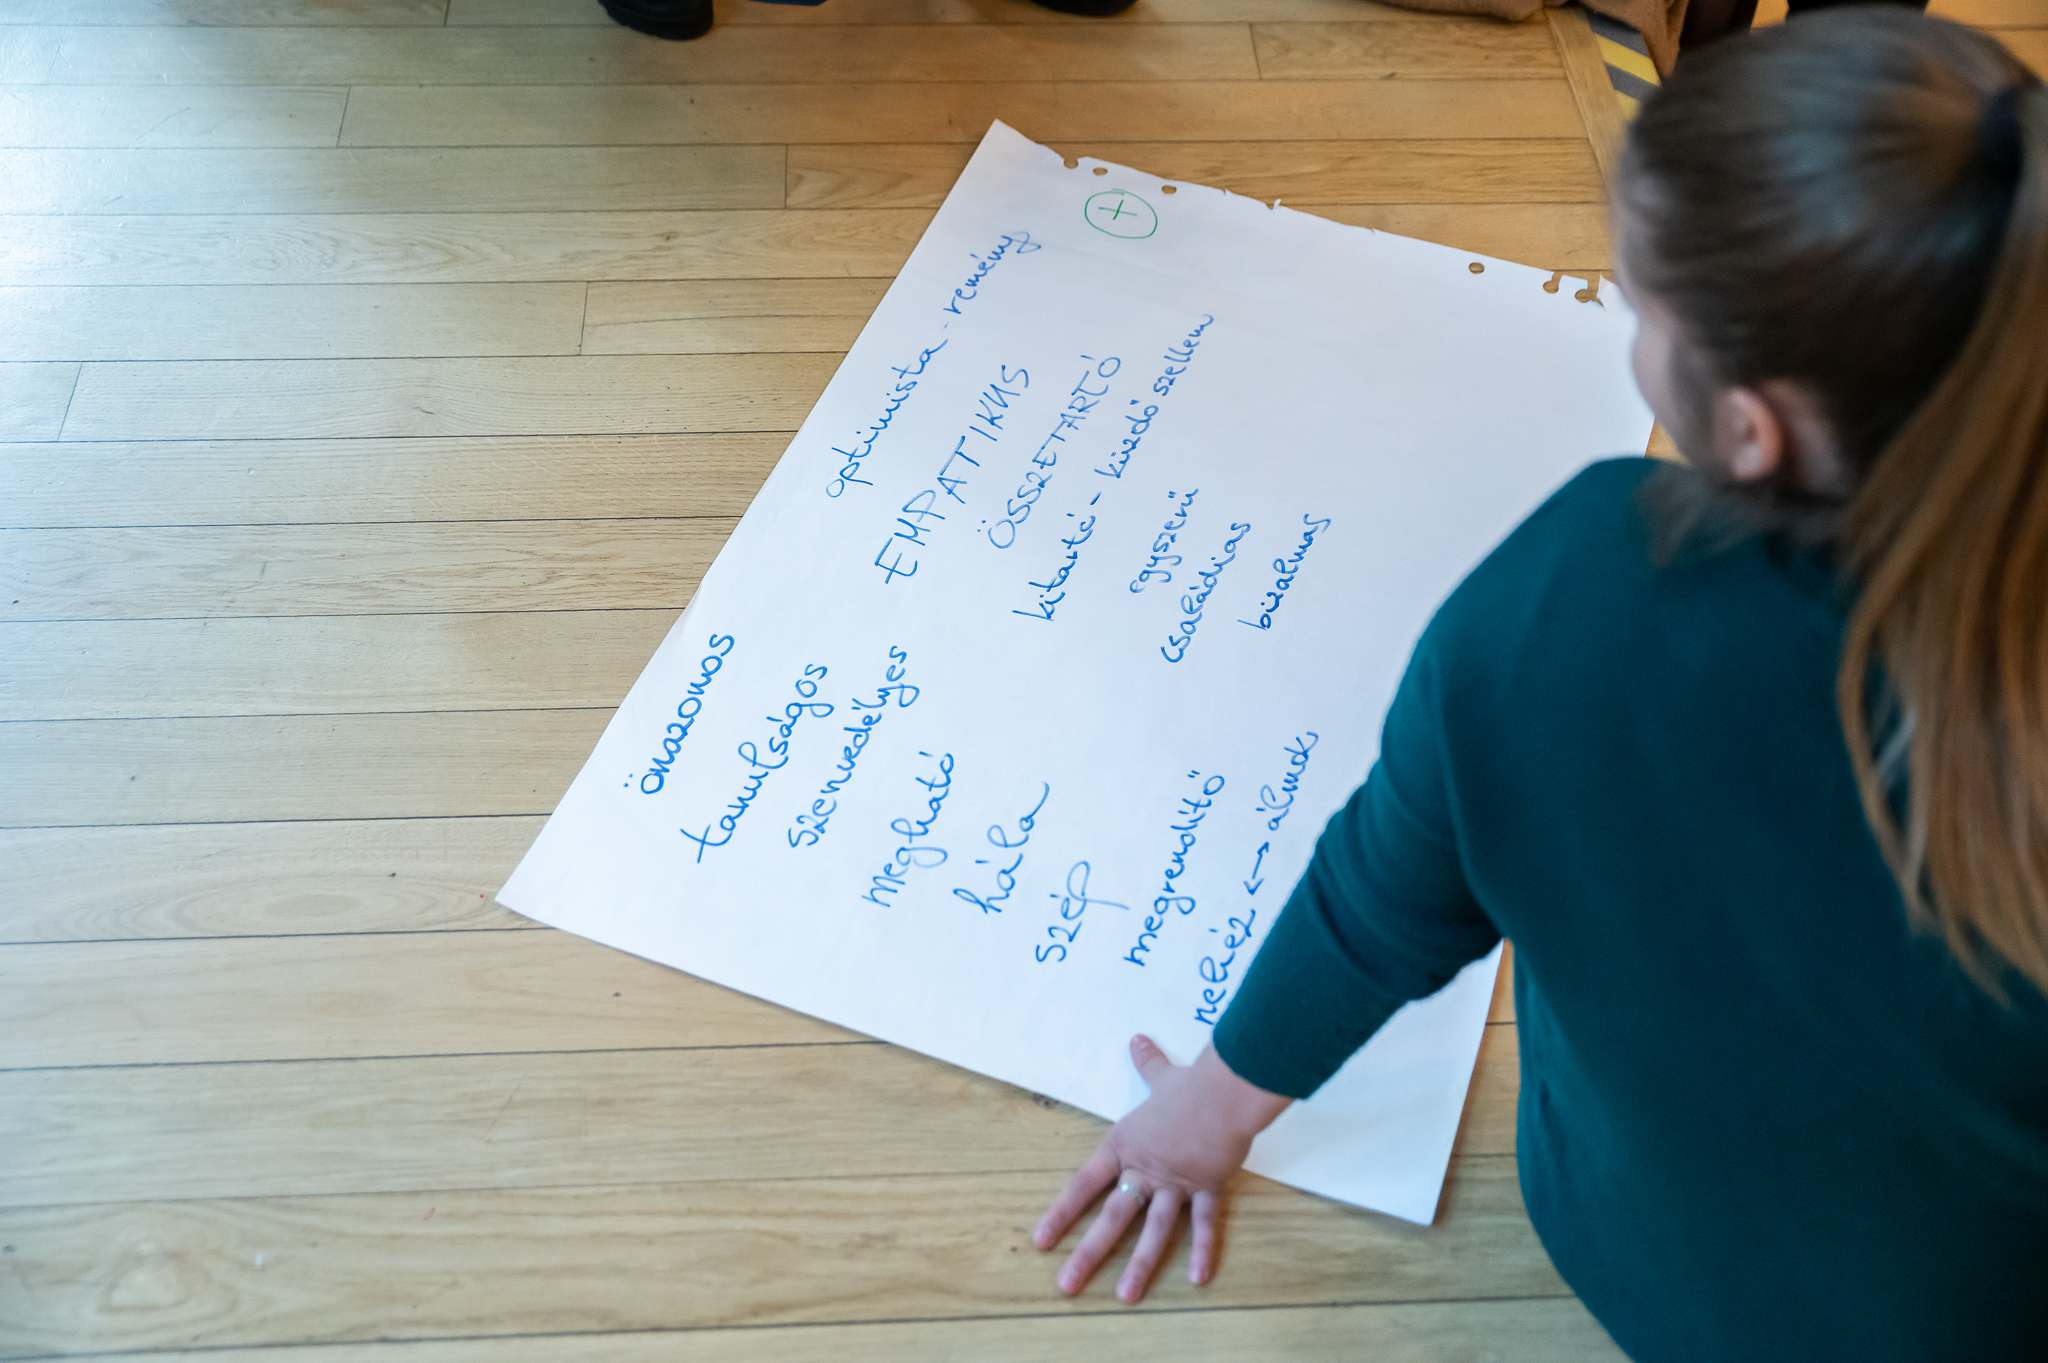 +
önazonos
tanulságos
szenvedélyes
megható
hála
szép
megrendítő
nehéz ↔ álmok
optimista - remény
EMPATIKUS
ÖSSZETARTÓ
kitartó - küzdő szellem
egyszerű
családias
bizalmas